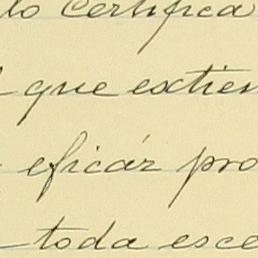 lo Certifica
que extien
eficáz pro
toda esce